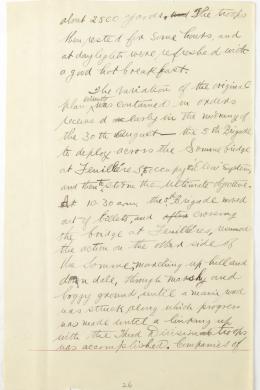 about 2500 yards. The troops
then rested for some hours and
at daylight were refreshed with
a good hot breakfast.
The variation of the original
plan was contained in orders
received early in the morning of
the 30th August — the 5th Brigade
to deploy across the Somme bridge
at Feuilleres, occupy the line system,
and then storm the ultimate objective.
At 10.30 am the 5th Brigade moved
out of billets, and crossing
the bridge at Feuilleres, resumed
the action on the other side of
the Somme, marching up hill and
down dale, through marshy and
boggy ground, until a main road
was struck along which progress
was made until a linking up
with the Third Division troops
was accomplished. Companies of
26